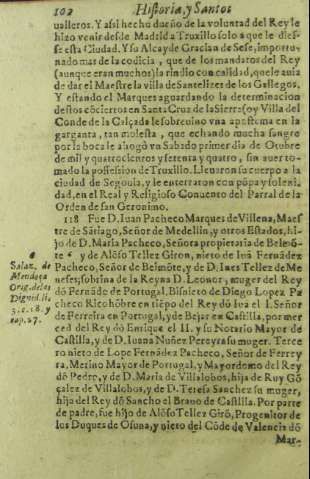 102 Historia, y Santos
ualleros. Y assi hecho dueño de la voluntad del Rey le
hizo venir desde Madrid a Truxillo solo a que le dies-
se esta Ciudad. Y su Alcayde Gracian de Sese, importu-
nado mas de la codicia, que de los mandatos del Rey
(aunque eran muchos) la rindio con calidad, que le auia
de dar el Maestre la villa de Santelizes de los Gallegos.
Y estando el Marques aguardando la determinacion
destos cõciertos en Santa Cruz de la Sierra (oy Villa del
Conde de la Calçada le sobreuino vna apostema en la
garganta, tan molesta, que echando mucha sangre
por la boca le ahogò vn Sabado primer dia de Otubre
de mil y quatrocientos y setenta y quatro, sin auer to-
mado la possession de Truxillo. Lleuaron su cuerpo a la
ciudad de Segouia, y le enterraron con põpa y soleni-
dad, en el Real y Religioso Conuento del Parral de la
Orden de san Geronimo.
118 Fue D. Iuan Pacheco Marques de Villena, Maes
tre de Sãtiago, Señor de Medellin, y otros Estados, hi-
jo de D. Maria Pacheco, Señora propietaria de Belmõ-
te y de Alõso Tellez Giron, nieto de Iuã Fernãdez
Pacheco, Señor de Belmõte, y de D. Ines Tellez de Me
neses, sobrina de la Reyna D. Leonor, muger del Rey
dõ Fernãdo de Portugal. Bisnieto de Diego Lopez Pa
checo Ricohõbre en tiẽpo del Rey dõ Iuã el I. Señor
de Ferreira en Portugal, y de Bejar en Castilla, por mer
ced del Rey dõ Enrique el II. y su Notario Mayor de
Castilla, y de D. Iuana Nuñez Pereyra su muger. Terce
ro nieto de Lope Fernãdez Pacheco, Señor de Ferrey
ra, Merino Mayor de Portugal, y Mayordomo del Rey
dõ Pedro, y de D. Maria de Villalobos, hija de Ruy Gõ
çalez de Villalobos, y de D. Teresa Sanchez su muger,
hija del Rey dõ Sancho el Brauo de Castilla. Por parte
de padre, fue hijo de Alõso Tellez Girõ, Progenitor de
los Duques de Osuna, y nieto del Cõde de Valencia dõ
Mar-
Salaz. de
Mendoça
Orig. de las
Dignid. li.
3. c. 18. y
cap. 17.